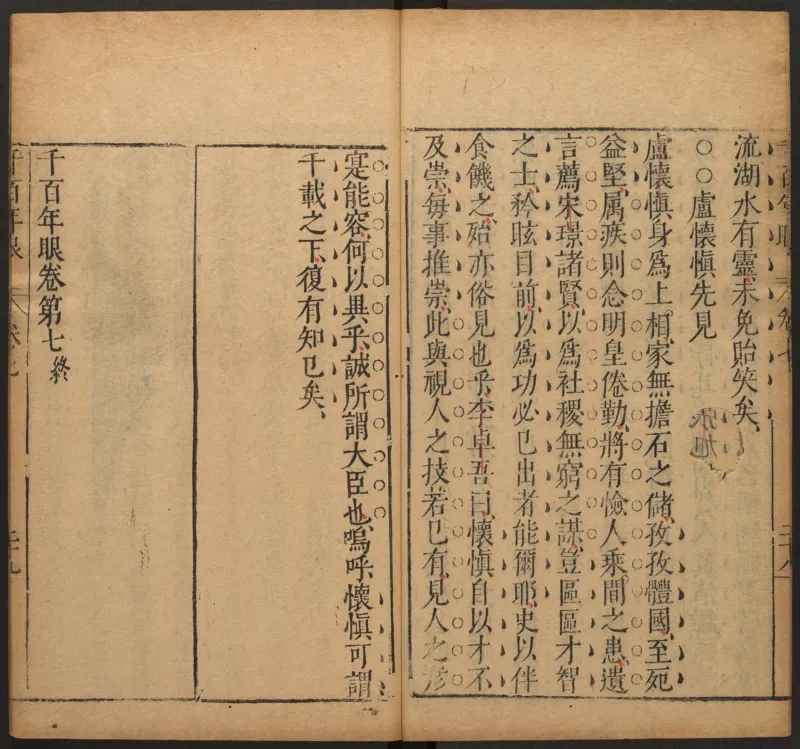 流湖水有靈未免貽笑矣、
○○盧懷愼先見
盧懷愼身爲上相家無擔石之儲孜孜體國至死
益堅属疾則念明皇倦勤將有憸人乘間之患遺
言薦宋璟諸賢以爲社稷無窮之謀豈區區才智
之士矜眩目前以爲功必己出者能爾耶史以伴
食饑之殆亦俗見也乎李卓吾曰懷愼自以才不
及崇每事推崇此與視人之技若已有見人之彥
寔能容何以異乎誠所謂大臣也嗚呼懷愼可謂
千載之下復有知已矣、
千百年眼卷第七終
千百年眼 卷七 二十九